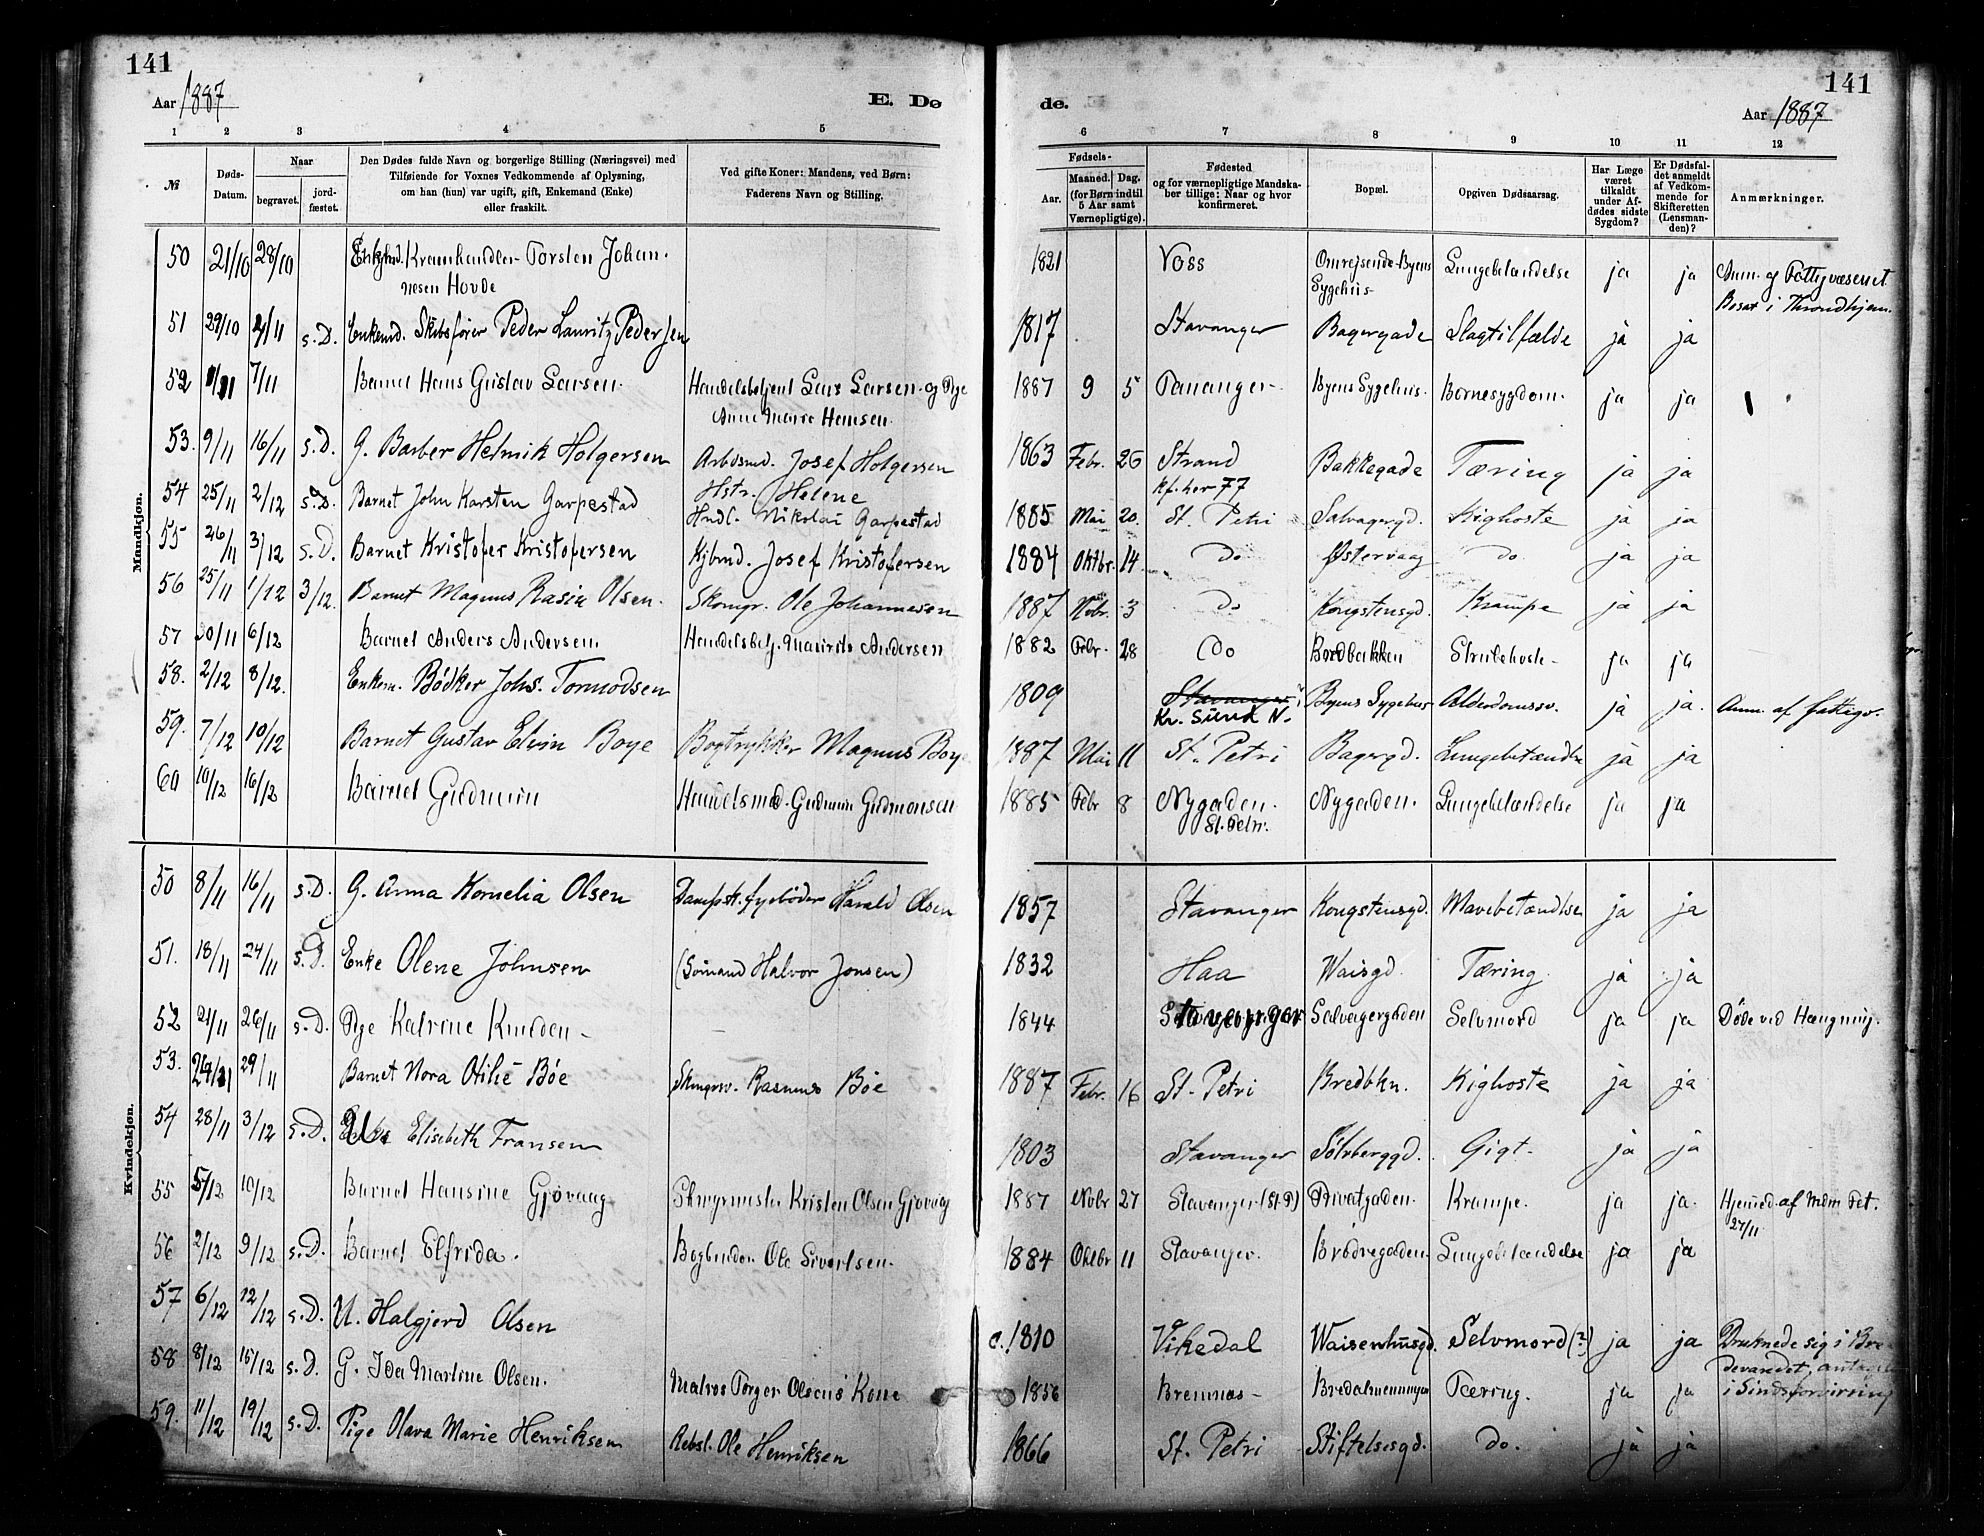 141
Aar 1887
E. Dø
de.
141
Aar 1887
1 2 3 4 5 6 7 8 9 10 11 12
№
Døds-
Datum.
Naar
begravet.
jord-
fæstet.
Den Dødes fulde Navn og borgerlige Stilling (Næringsvei) med
Tilføiende for Voxnes Vedkommende af Oplysning,
om han (hun) var ugift, gift, Enkemand (Enke)
eller fraskilt.
Ved gifte Koner: Mandens, ved Børn:
Faderens Navn og Stilling.
Fødsels-
Aar.
Maaned. Dag.
(for Børn indtil
5 Aar samt
Værnepligtige).
Fødested
og for værnepligtige Mandska-
ber tillige: Naar og hvor
konfirmeret.
Bopæl.
Opgiven Dødsaarsag.
Har Læge
været
tilkaldt
under Af-
dødes sidste
Sygdom?
Er Dødsfal-
det anmeldt
af Vedkom-
mende for
Skifteretten
(Lensman-
den)?
Anmærkninger.
Mandkjøn.
50 21/10 28/10 Kramhandler Torsten Johan-
nesen Hovde 1821 Voss Omreisende-Byens
Sygehus- Lungebetændelse ja ja Anm. af Fattigvæsenet
Bosat i Throndhjem.
51 29/10 4/11 s.D. Enkemd. Skibsfører Peder Lauritz Pedersen 1817 Stavanger Bagergade Slagtilfælde ja ja
52 7/11 Barnet Hans Gustav Larsen. Handelsbetjent Lars Larsen og Pige
Anne Marie Hansen. 1887 9 5 Tananger Byens Sygehus. Børnesygdom. ja ja
53. 9/11 16/11 s.D. G. Barber Helmik Holgersen Arbdsmd. Josef Holgersen 1863 Febr. 26 Strand
kf. her 77 Bakkegade Tæring ja ja
Hstr. Helene
54 25/11 2/12 s.D. Barnet John Karsten Garpestad Hndl. Nikolai Garpestad 1885 Mai 20. St. Petri Salvagergd. Kighoste ja ja
55 26/11 3/12 s.D. Barnet Kristofer Kristofersen Kjbmd. Josef Kristofersen 1884 Oktbr. 14. Do Østervaag do ja ja
56 25/11 1/12 3/12. Barnet Magnus Rasin Olsen. Skomgr. Ole Johannesen 1887 Nobr. 3 Do Kongstensgd. Krampe ja ja
57 30/11 6/12 Barnet Anders Andersen. Handelsbetj. Mauritz Andersen 1882 Febr. 28 Do Bredbakken Strubehoste- ja ja
58. 2/12 8/12. Enkem. Bødker Johs. Tormodsen 1809 Stavanger
Kr. Sund N. Byens Sygehus Alderdomssv. ja ja. Anm. af fattigv.
59. 7/12 10/12 Barnet Gustav Elvin Boye Bogtrykker Magnus Boye 1887 Mai 11 St. Petri Bagergd. Lungebetændlse ja ja
60 10/12 16/12 Barnet Gudmun Handelsmd. Gudmun Gudmonsen 1885 Febr 8 Nygaden.
St. Petri. Nygaden. Lungebetændelse ja ja
Kvindekjøn.
50 8/11 16/11 s.D. G. Anna Kornelia Olsen Dampsk. fyrbøder Harald Olsen 1857 Stavanger Kongstensgd. Mavebetændlse ja ja
51. 18/11 24/11 s.D. Enke Olene Johnsen (Sømand Halvor Jonsen) 1832 Haa Waisgd. Tæring ja ja
52 21/11 26/11 s.D. Pige Katrine Knudsen- 1844 Stavanger Salvagergaden Selvmord ja ja Døde ved Hængning.
53. 29/11 Barnet Nora Otilie Bøe Rasmus Bøe 1887 Febr. 16 St. Petri Bredbkn. Kighoste ja ja
54 28/11 3/12 s.D. Elisebeth Fransen 1803 Stavanger Sølvberggd. Gigt- ja ja
55 5/12 10/12 Barnet Hansine Gjøvaag Kristen Olsen Gjøvaag 1887 Nobr 27 Stavanger (St.P) Privatgaden. Krampe. ja ja. Hjemmed. af Mdm Pet.
27/11
56 2/12 9/12 s.D. Barnet Elfrida. Bogbinder Ole Sivertsen. 1884 Oktbr 11 Stavanger. Brødregaden Lungebetændelse ja ja
57 6/12 12/12 s.D. U. Halgjerd Olsen c. 1810 Vikedal Waisenhusgd. Selvmord (?) ja ja Druknede sig i Bre-
devandet, antagelig
i Sindsforvirring
58 8/12 15/12 s.D. G. Ida Martine Olsen. Matros Torger Olsens Kone 1856 Bremnæs- Bredalmenningen Tæring. ja ja
59. 11/12 19/12 s.D. Pige Olava Marie Henriksen Rebsl. Ole Henriksen 1866 St. Petri Stiftelsesgd. do. ja ja